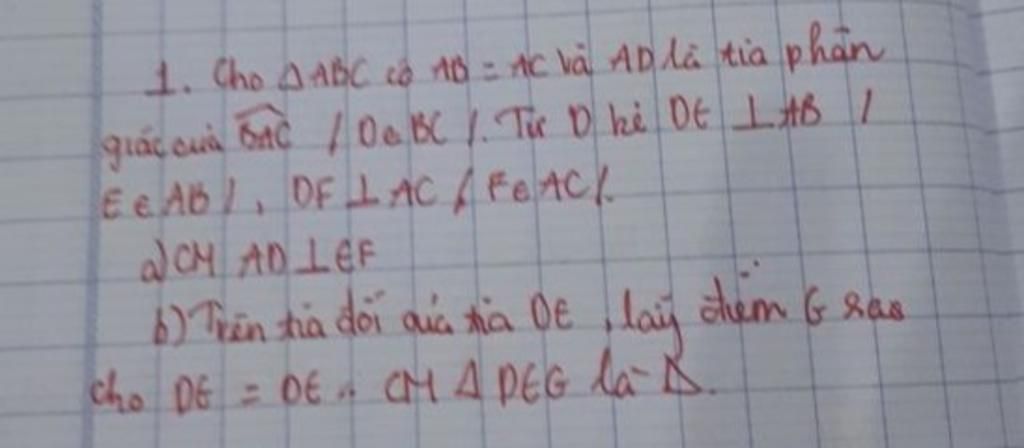 1. Cho ΔABC có AB = AC và AD là tia phân
giác của BAC / D∈BC /. Từ D kẻ DE ⊥ AB /
E∈AB /, DF ⊥ AC / F∈AC /.
a) CM AD ⊥ EF
b) Trên tia đối của tia DE, lấy điểm G sao
cho DG = DE. CM Δ DEG là Δ.